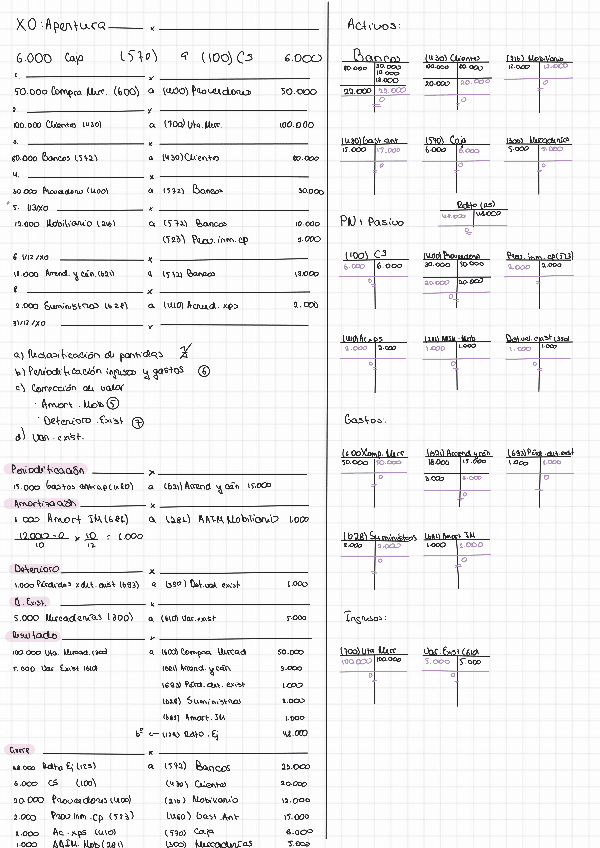 XO: Apertura x
6.000 Caja (570) a (100) CS 6.000
1. x
50.000 Compra Merc. (600) a (400) Proveedores 50.000
2. x
100.000 Clientes (430) a (700) Vta. Merc. 100.000
3. x
80.000 Bancos (572) a (430) Clientes 80.000
4. x
30.000 Proveedores (400) a (572) Bancos 30.000
5. 1/3/X0 x
12.000 Mobiliario (216) a (572) Bancos 10.000
(523) Prov. inm. cp 2.000
6 1/12/X0 x
18.000 Arrend. y cán (621) a (572) Bancos 18.000
x
2.000 Suministros (628) a (410) Acreed. xps 2.000
31/12/X0 x
a) Reclasificación de partidas
b) Periodificación ingresos y gastos (6)
c) Corrección de valor
· Amort. Mob (5)
· Deterioro. Exist (7)
d) Var. exist.
Periodificación x
15.000 Gastos antcap (480) a (621) Arrend y cán 15.000
Amortización x
1.000 Amort IM (681) a (281) AAIM Mobiliario 1.000
12.000 - 0 / 10 x 10 / 12 = 1.000
Deterioro x
1.000 Pérdidas x det. exist (693) a (390) Det. val. exist 1.000
Δ. Exist. x
5.000 Mercaderías (300) a (610) Var. exist 5.000
Resultado x
100.000 Vta. Mercad. (700) a (600) Compra Mercad 50.000
5.000 Var Exist (610) (621) Arrend. y cán 3.000
(693) Pérd. det. exist 1.000
(628) Suministros 2.000
(681) Amort. IM 1.000
bº ← (129) Rdto. Ej 48.000
Cierre x
48.000 Rdto Ej (129) a (572) Bancos 22.000
6.000 CS (100) (430) Clientes 20.000
20.000 Proveedores (400) (216) Mobiliario 12.000
2.000 Prov. inm. cp (523) (480) Gast. Ant 15.000
2.000 Ac. xps (410) (570) Caja 6.000
1.000 AAIM. Mob (281) (300) Mercaderías 5.000
Activos:
Bancos (430) Clientes (216) Mobiliario
80.000 30.000 100.000 80.000 12.000 12.000
10.000
18.000
22.000 22.000 20.000 20.000
0 0 0
(480) Gast ant (570) Caja (300) Mercaderías
15.000 15.000 6.000 6.000 5.000 5.000
0 0 0
PN + Pasivo
48.000 48.000
(100) CS (400) Proveedores Prov. inm. cp (523)
6.000 6.000 30.000 50.000 2.000 2.000
0 20.000 20.000 0
0
(410) Ac xps (281) AAIM. Mob Det val. exist (390)
2.000 2.000 1.000 1.000 1.000 1.000
0 0 0
Gastos:
(600) Comp. Merc (621) Arrend y cán (693) Pérd. det. exist
50.000 50.000 18.000 15.000 1.000 1.000
0 3.000 3.000 0
0
(628) Suministros (681) Amort IM
2.000 2.000 1.000 1.000
0 0
Ingresos:
(700) Vta Merc Var. Exist (610)
100.000 100.000 5.000 5.000
0 0